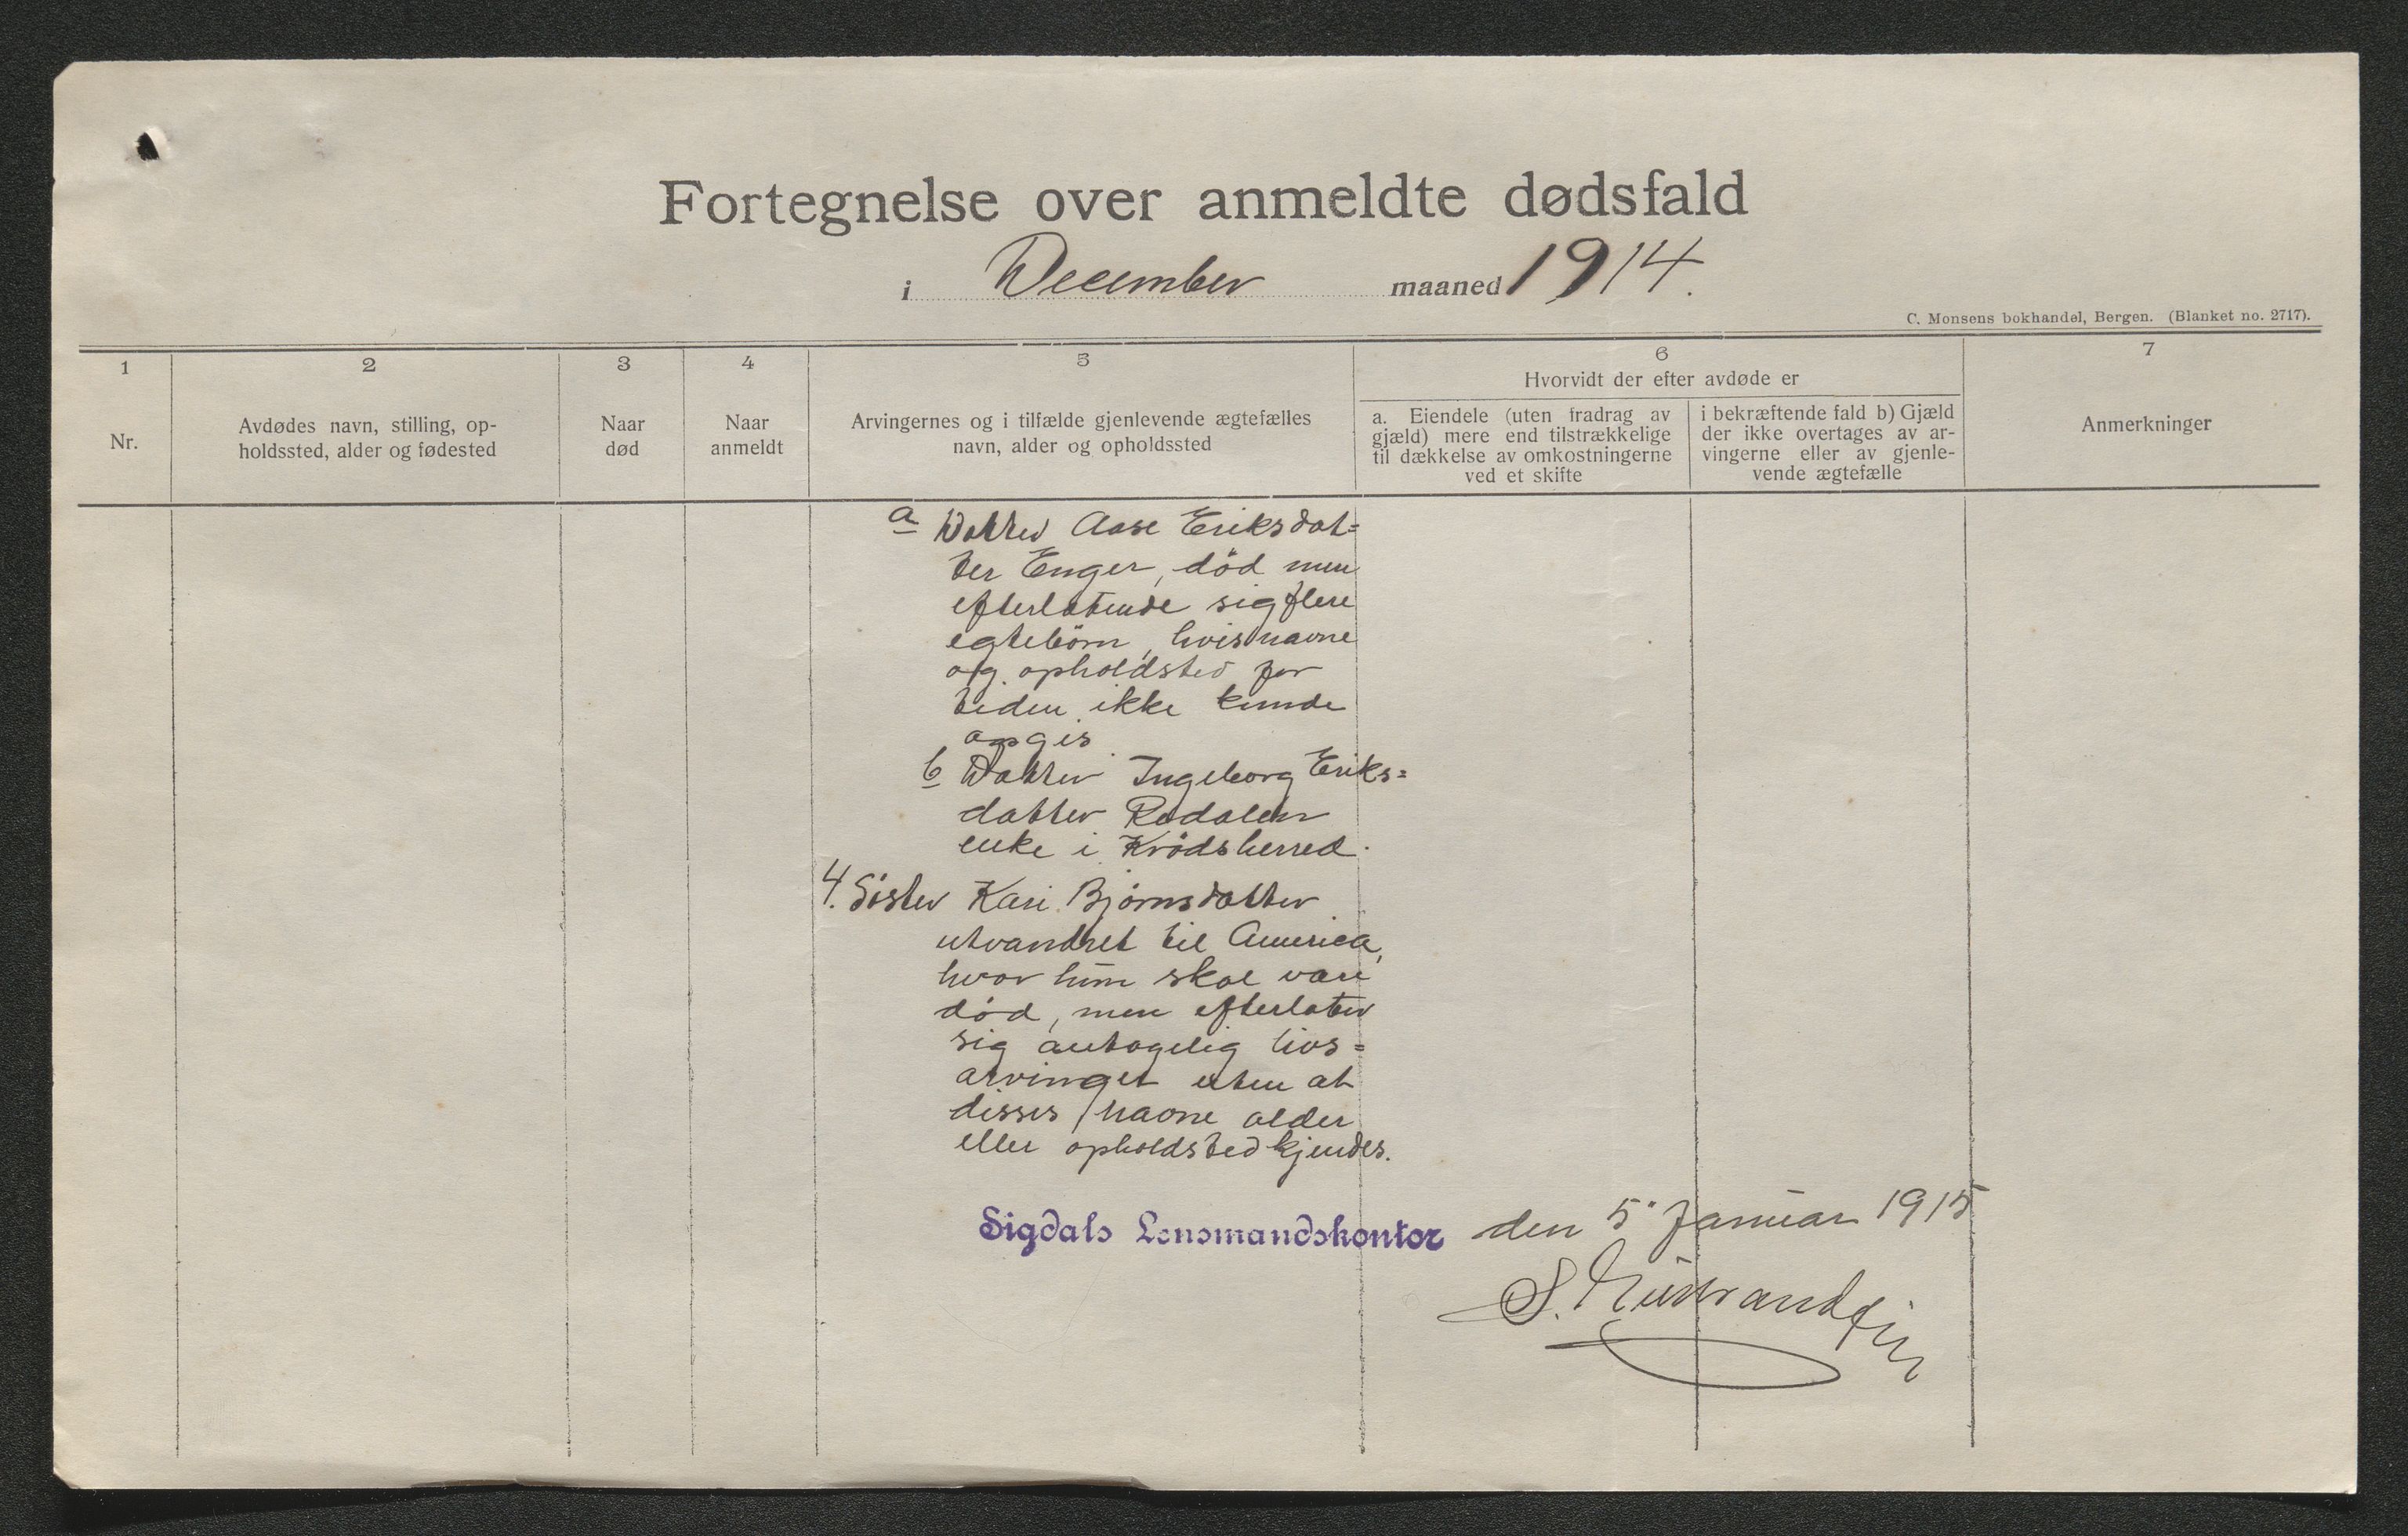 Fortegnelse over anmeldte dødsfald
i December maaned 1914.
C. Monsens bokhandel, Bergen. (Blanket no. 2717).
1
Nr.
2
Avdødes navn, stilling, op-
holdssted, alder og fødested
3
Naar
død
4
Naar
anmeldt
5
Arvingernes og i tilfælde gjenlevende ægtefælles
navn, alder og opholdssted
6
Hvorvidt der efter avdøde er
a. Eiendele (uten fradrag av
gjæld) mere end tilstrækkelige
til dækkelse av omkostningerne
ved et skifte
i bekræftende fald b) Gjæld
der ikke overtages av ar-
vingerne eller av gjenle-
vende ægtefælle
7
Anmerkninger
a Datter Aase Eriksdat=
ter Enger, död men
efterlatende sig flere
egtebörn, hvis navne
og opholdsted for
tiden ikke kunde
opgis
b Datter Ingeborg Eriks=
datter Rodalen
enke i Krödsherred.
4. Sister Kari Björnsdatter
utvandret til America,
hvor hun skal være
död, men efterlater
sig antagelig livs=
arvinger uten at
disses navne alder
eller opholdsted kjendes.
Sigdals Lensmandskontor den 5' Januar 1915
S.